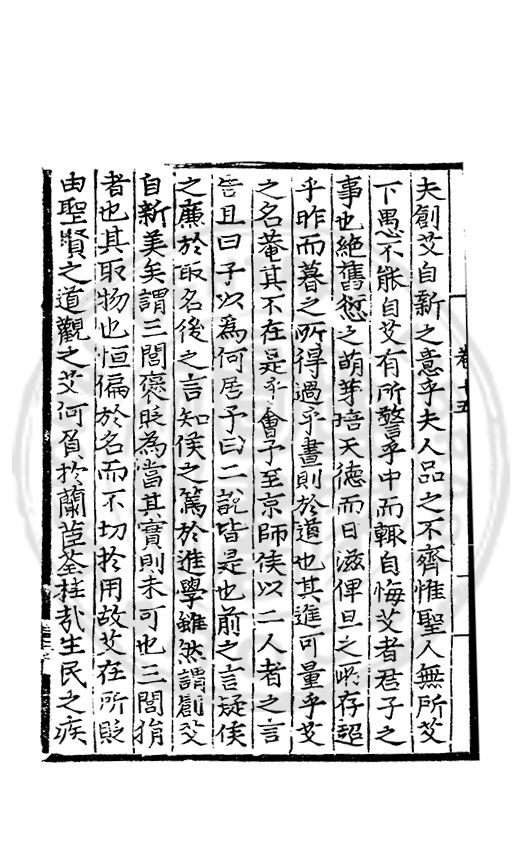 夫創艾自新之意乎夫人品之不齊惟聖人無所艾
下愚不能自艾有所警乎中而輒自悔艾者君子之
事也絶舊愆之萌芽培天德而日滋俾旦之所存踰
乎昨而暮之所得過乎晝則於道也其進可量乎艾
之名菴其不在是乎會予至京師侯以二人者之言
告且曰子以為何居予曰二說皆是也前之言疑侯
之廉於取名後之言知侯之篤於進學雖然謂創艾
自新美矣謂三閭褒貶為當其實則未可也三閭狷
者也其取物也恒偏於名而不切於用故艾在所貶
由聖賢之道觀之艾何負於蘭茝荃桂哉生民之疾
卷十五